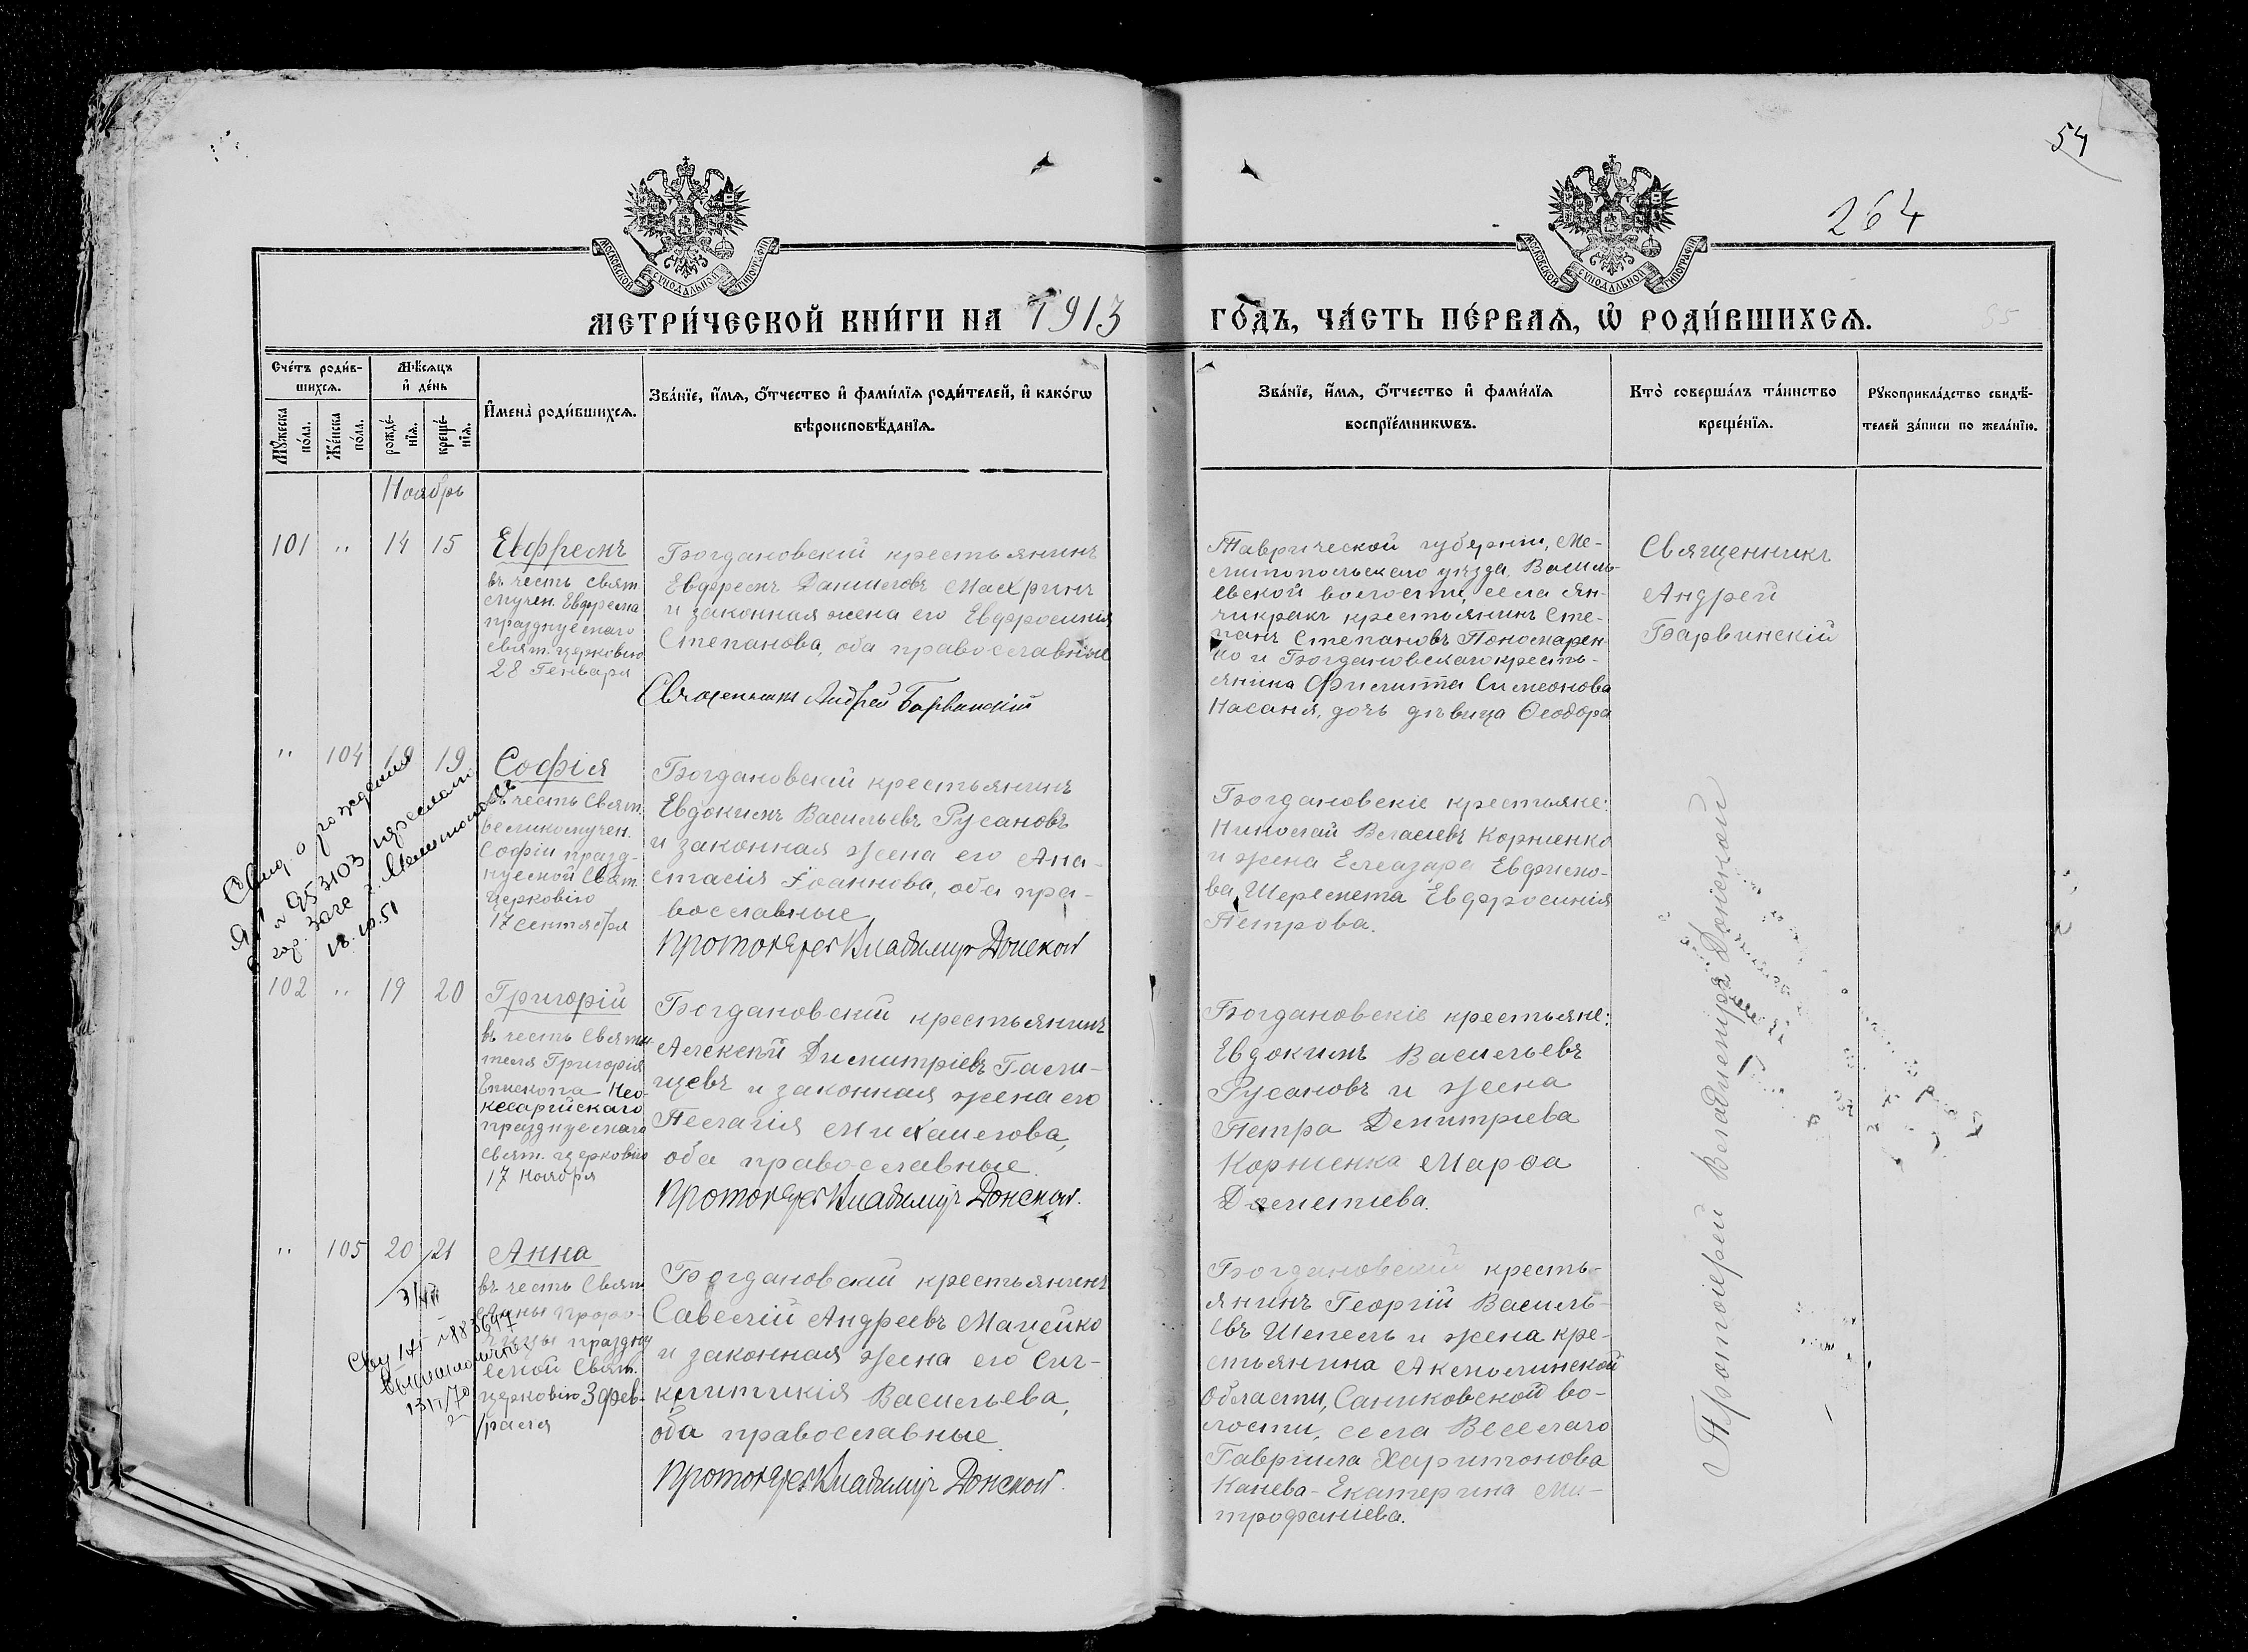 54
264
МОСКОВСКОЙ СѴНОДАЛЬНОЙ ТИПОГРАФІИ
МОСКОВСКОЙ СѴНОДАЛЬНОЙ ТИПОГРАФІИ
МЕТРИ́ЧЕСКОЙ КНИ́ГИ НА 1913
ГО́ДЪ, ЧА́СТЬ ПЕ́РВАѦ, Ѡ҆ РОДИ́ВШИХСѦ.
Сче́тъ роди́в-
шихсѧ.
Мꙋ́жеска
по́ла.
Же́нска
по́ла.
Мѣ́сѧцъ
и҆ де́нь
рожде́-
нїѧ.
креще́-
нїѧ.
И҆мена̀ роди́вшихсѧ.
Зва́нїе, и҆́мѧ, ѻ҆́тчество и҆ фами́лїѧ роди́телей, и҆ како́гѡ
вѣроисповѣ́данїѧ.
Зва́нїе, и҆́мѧ, ѻ҆́тчество и҆ фами́лїѧ
воспрїе́мникѡвъ.
Кто̀ соверша́лъ та́инство
креще́нїѧ.
Рꙋкоприкла́дство свидѣ́-
телей за́писи по жела́нїю.
Ноябрь
101 " 14 15
Евфремъ
въ честь свят.
мучен. Евфрема
празднуемаго
свят. церковію
28 Генваря
Богдановскій крестьянинъ
Евфремъ Даниловъ Махринъ
и законная жена его Евфросинія
Степанова, оба православные
Священникъ Андрей Барвинскій
Таврической губерніи, Ме-
литопольскаго уѣзда, Василь-
евской волости, села Ян-
чикракъ крестьянинъ Сте-
панъ Степановъ Пономарен-
ко и Богдановскаго кресть-
янина Филиппа Симеонова
Насаня, дочь дѣвица Ѳеодора
Священникъ
Андрей
Барвинскій
" 104 19 19
Софія
въ честь Свят.
великомучен.
Софіи празд-
нуемой Свят.
Церковію
17 сентября
Свид. о рождении
гор. загс г. Мелитополь
18.10.51
Богдановскій крестьянинъ
Евдокимъ Васильевъ Русановъ
и законная жена его Ана-
стасія Іоаннова, оба пра-
вославные
Протоіерей Владимиръ Донской
Богдановскіе крестьяне:
Николай Власіевъ Корніенко
и жена Елеазара Евфимо-
ва Шеремета Евфросинія
Петрова.
102 " 19 20
Григорій
въ честь Святи-
теля Григорія
Епископа Нео-
кесарійскаго
празднуемаго
свят. церковію
17 Ноября
Богдановскій крестьянинъ
Алексѣй Димитріевъ Гали-
цевъ и законная жена его
Пелагія Михаилова,
оба православные.
Протоіерей Владимиръ Донской.
Богдановскіе крестьяне:
Евдокимъ Васильевъ
Русановъ и жена
Петра Димитріева
Корніенка Марѳа
Дементіева.
" 105 20 21
Анна
въ честь Свят.
Анны проро-
чицы праздну
емой Свят.
церковію 3 фев-
раля
Богдановскій крестьянинъ
Савелій Андреевъ Малейко
и законная жена его Син-
клитикія Васильева,
оба православные.
Протоіерей Владимиръ Донской.
Богдановскій кресть-
янинъ Георгій Василь-
евъ Шепель и жена кре-
стьянина Акмолинской
Области, Саниковской во-
лости, села Веселаго
Гавріила Харитонова
Канева - Екатерина Ми-
трофаніева.
Протоіерей Владимиръ Донской